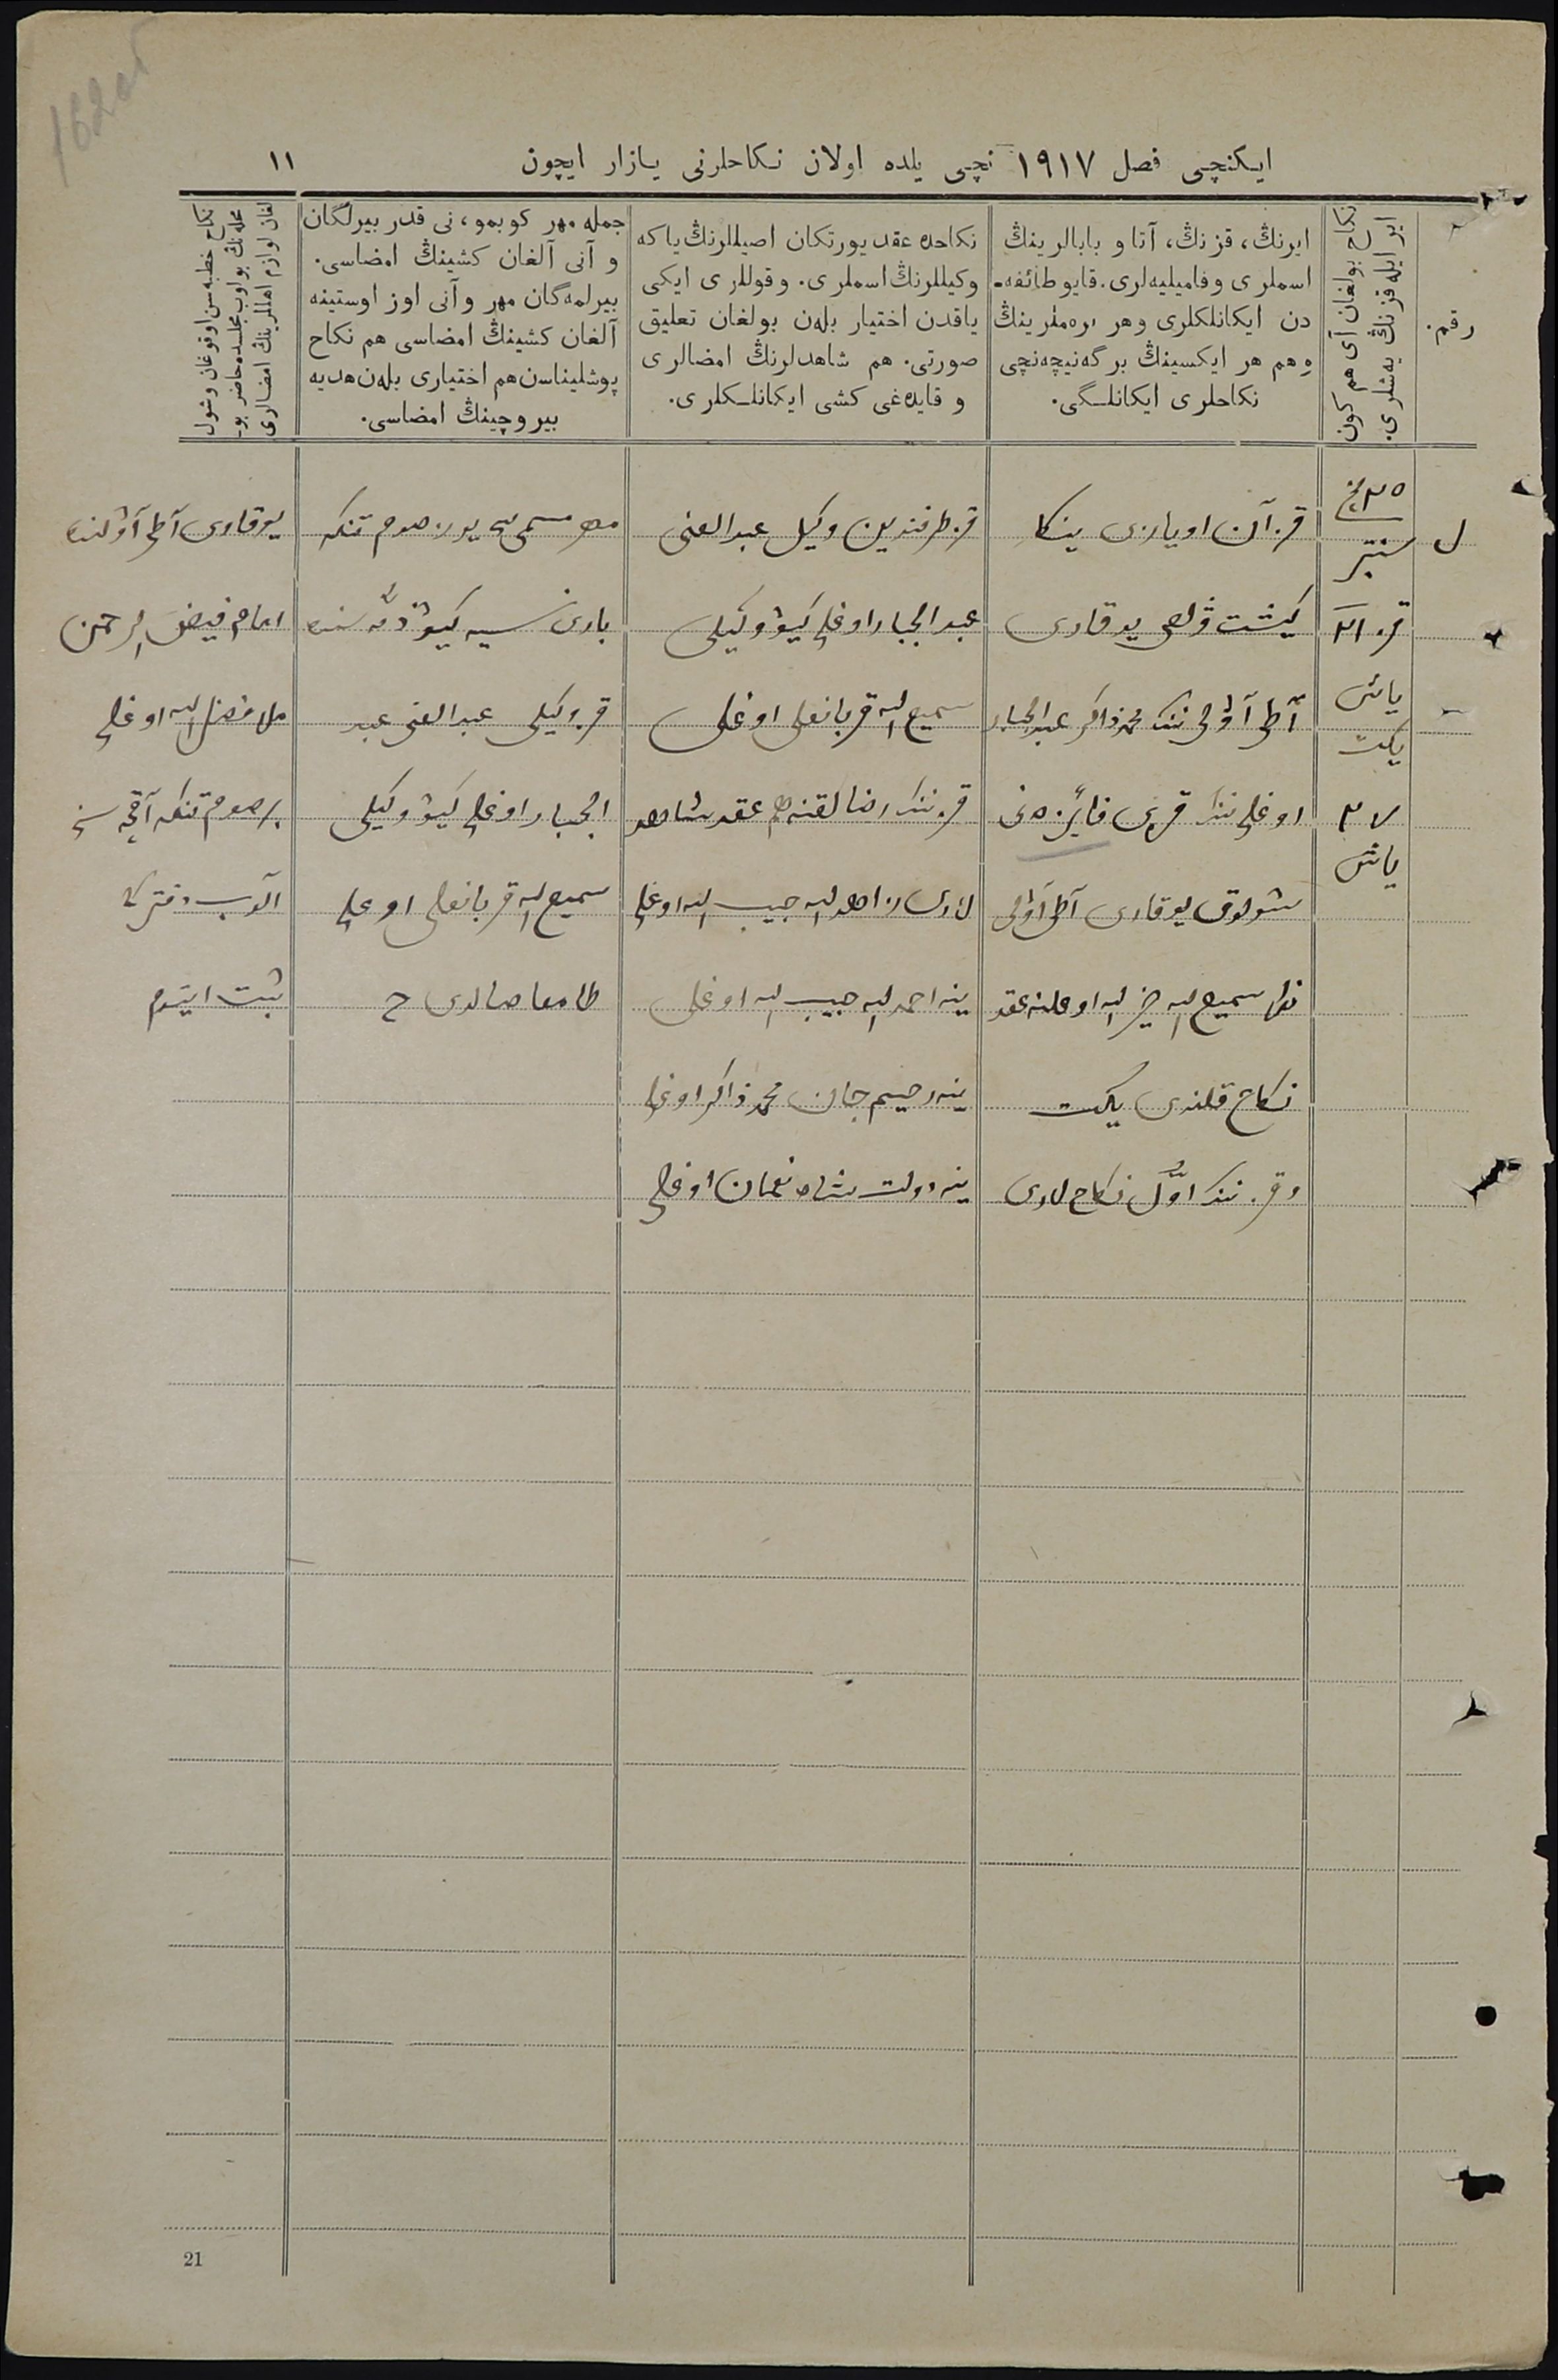 162 об
ایکنچی فصل ۱۹۱۷ نچی یلده اولان نکاحلرنی یازار ایچون
۱۱
رقم.
نکاح بولغان آی هم کون
ایر ایله قزنڭ یه‌شلری.
ایرنڭ، قزنڭ، آتا و بابالرینڭ
اسملری و فامیلیه‌لری. قایو طائفه‌ـ
دن ایکانلکلری وهر برەملرینڭ
وهم هر ایکسینڭ برگه‌نیچه‌نچی
نکاحلری ایکانلـگی.
نکاحده عقد یورتکان اصیللرنڭ یاکه
وکیللرنڭ اسملری. وقوللری ایکی
یاقدن اختیار بله‌ن بولغان تعلیق
صورتی. هم شاهدلرنڭ امضالری
و قایده‌غی کشی ایکانلـکلری.
جمله مهر کوبمو، نی قدر بیرلگان
و آنی آلغان کشینڭ امضاسی.
بیرلمه‌گان مهر وآنی اوز اوستینه
آلغان کشینڭ امضاسی هم نکاح
پوشلیناسن هم اختیاری بله‌ن هدیه
بیروچینڭ امضاسی.
نکاح خطبه‌سن اوقوغان وشول
محله‌نڭ بولوب مجلسده حاضر بو‌ـ
لغان لوازم اهللرینڭ امضالری
۲۵ نچی
سنتبر
قز ۲۱
یاش
یکت
۲۷
یاش
قزآن اویازی ینکا
کیشت ۋلصی یوقاری
آطی آۋلی ننك محمدذاکر عبدالجبار
اوغلی ننك قزی فائزه نی
شولوق یوقاری آطی آۋلی
سمیع الله خیر الله اوغلنه عقد
نکاح قلندی یکت
وقز ننك اوّل نکاح لاری
قز طرفندین وکیل عبدالغنی
عبدالجبار اوغلی کیوۋکیلی
سمیع الله قربانعلی اوغلی
قز ننك رضالقنه هم عقد شاهد
لاری احمدالله حبیب الله اوغلی
ینه احمدالله حبیب الله اوغلی
ینه رحیم جان محمدذاکر اوغلی
ینه دولت شاه نعمان اوغلی
مهر مسمی یوز صوم تنکه
باری سیه کیوۋ ذمّه سنده
قز وکیلی عبدالغنی عبد
الجبار اوغلی کیوۋ وکیلی
سمیع الله قربانعلی اوغلی
طامغا صالدی
یوقاری آطی آۋلنده
امام فیض الرحمن
ملا فضل الله اوغلی
بر صوم تنکه آقچه سن
آلوب دفترکا
ثبت ایتدم
21